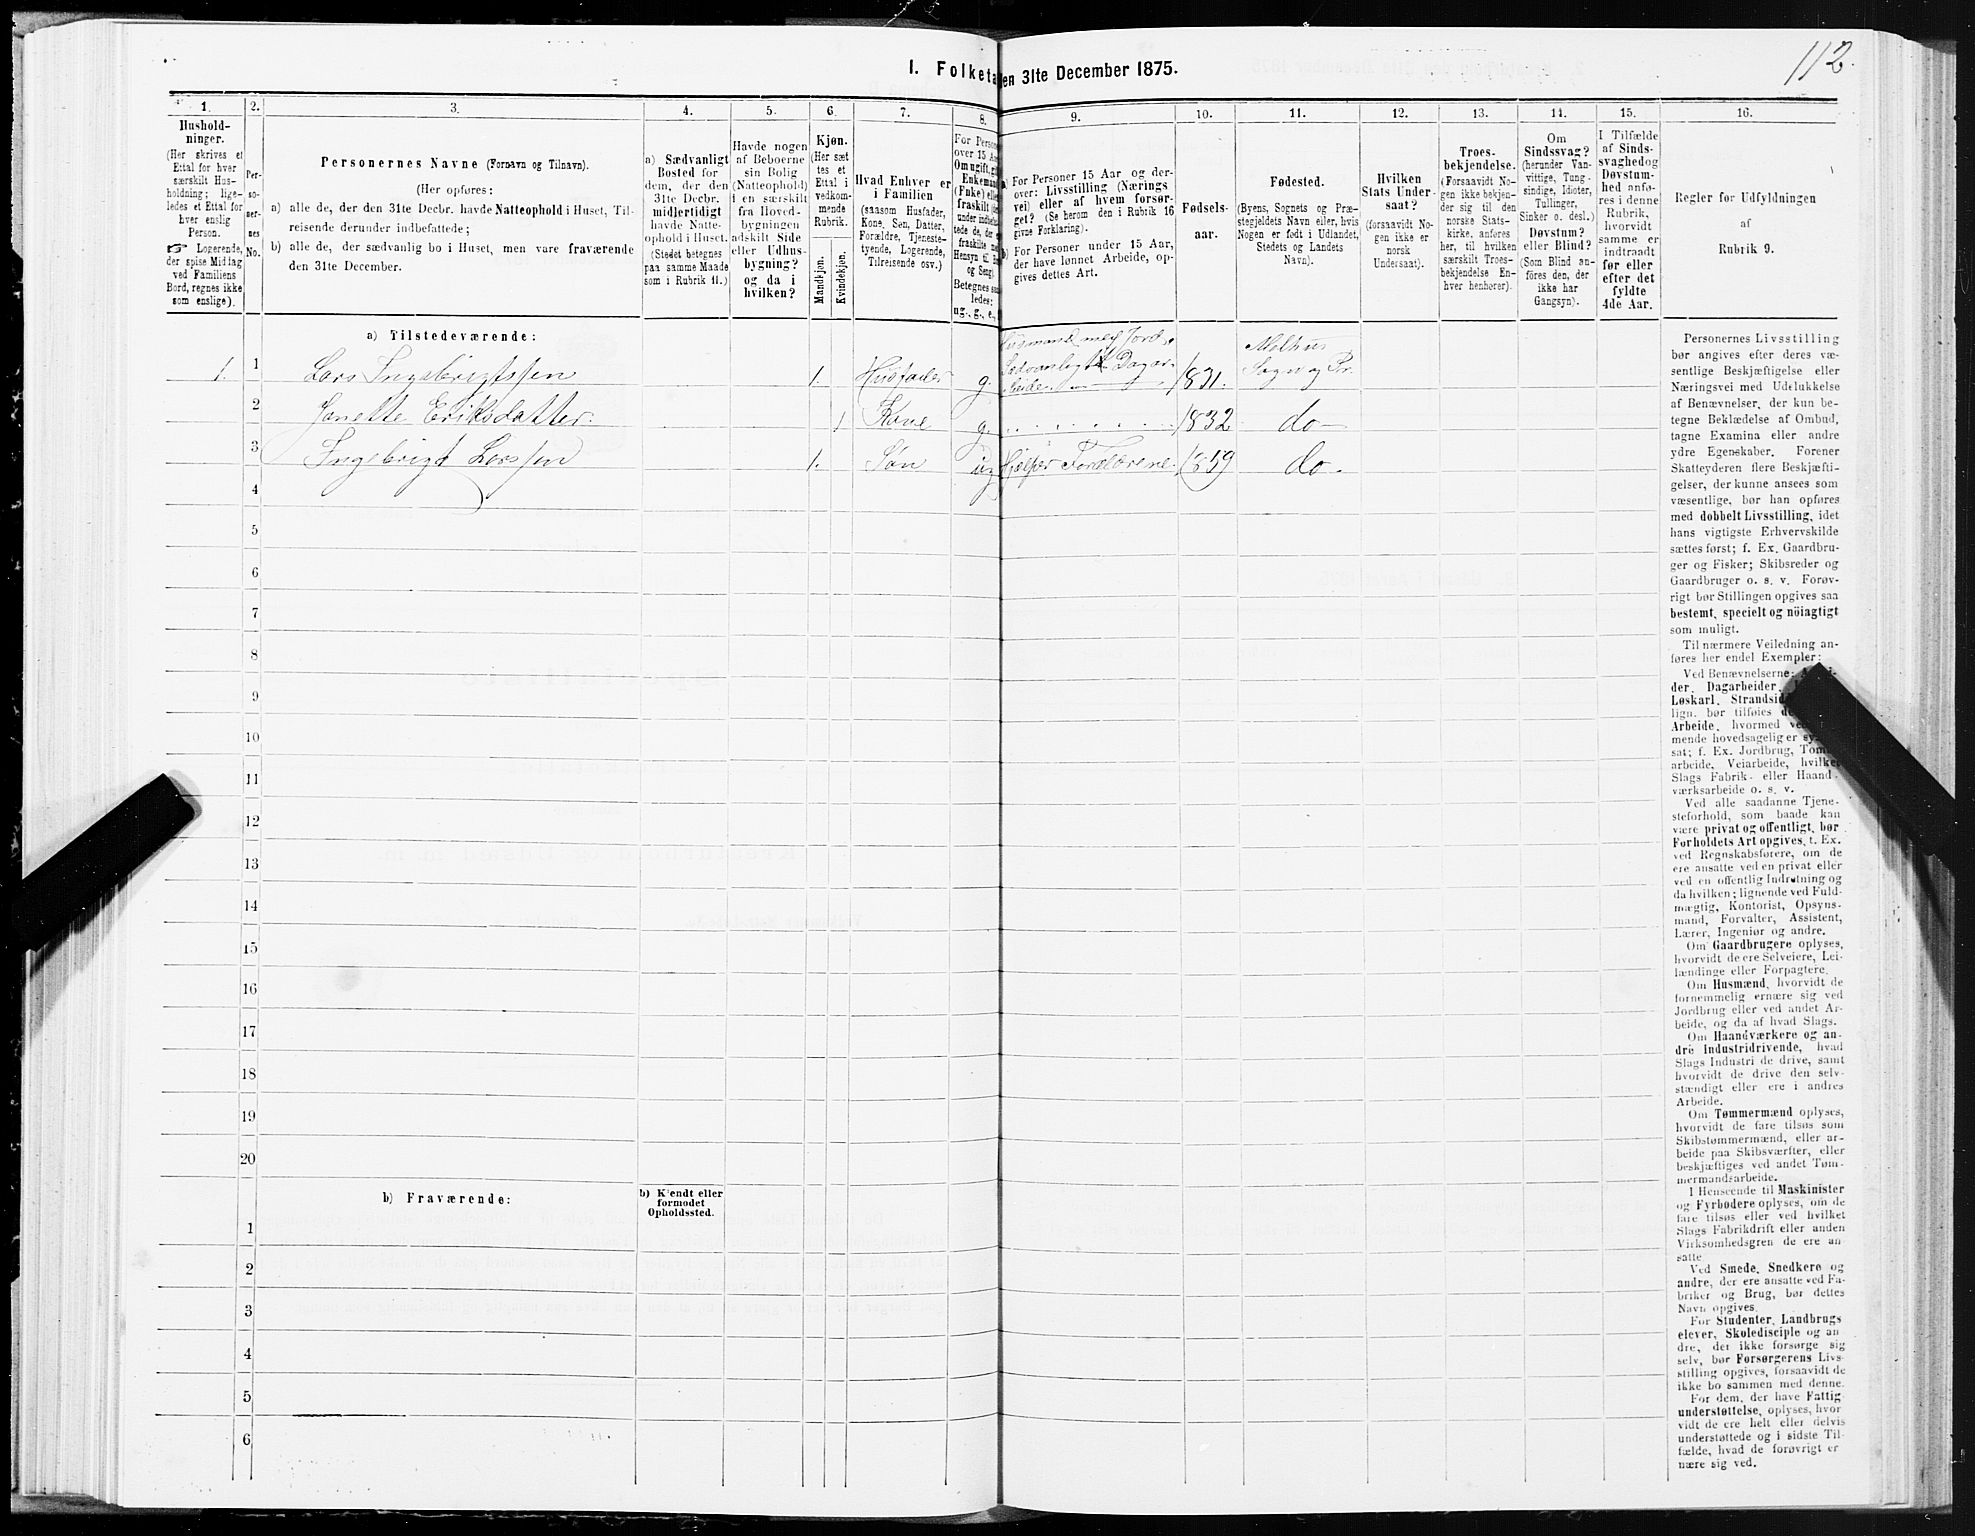 112.
I. Folketa
den 31te December 1875.
1.
Hushold-
ninger.
(Her skrives et
Ettal for hver
særskilt Hus-
holdning; lige-
ledes et Ettal for
hver enslig
Person.
☞ Logerende,
der spise Middag
ved Familiens
Bord, regnes ikke
som enslige).
2.
Per-
so-
ner-
nes
No.
3.
Personernes Navne (Fornavn og Tilnavn).
(Her opføres:
a) alle de, der den 31te Decbr. havde Natteophold i Huset, Til-
reisende derunder indbefattede;
b) alle de, der sædvanlig bo i Huset, men vare fraværende
den 31te December.
4.
a) Sædvanligt
Bosted for
dem, der den
31te Decbr.
midlertidigt
havde Natte-
ophold i Huset.
(Stedet betegnes
paa samme Maade
som i Rubrik 11.)
5.
Havde nogen
af Beboerne
sin Bolig
(Natteophold)
i en særskilt
fra Hoved-
bygningen
adskilt Side
eller Udhus-
bygning?
og da i
hvilken?
6.
Kjøn.
(Her sæt
tes et
Ettal i
vedkom-
mende
Rubrik.
Mandkjøn.
Kvindekjøn.
7.
Hvad Enhver er
i Familien
(saasom Husfader,
Kone, Søn, Datter,
Forældre, Tjeneste-
tyende, Logerende,
Tilreisende osv.)
8.
For Person
over 15 Aa
Om ugift, gi
Enkemand
(Enke) elle
fraskilt
ng., g., e.,
9.
a) For Personer 15 Aar og der-
over: Livsstilling (Nærings
vei) eller af hvem forsør-
get? (Se herom den i Rubrik 16
givne Forklaring).
b) For Personer under 15 Aar,
der have lønnet Arbeide, op-
gives dettes Art.
10.
Fødsels-
aar.
11.
Fødested.
(Byens, Sognets og Præ-
stegjeldets Navn eller, hvis
Nogen er født i Udlandet,
Stedets og Landets
Navn).
12.
Hvilken
Stats Under-
saat?
(forsaavidt No-
gen ikke er
norsk
Undersaat).
13.
Troes-
bekjendelse.
(Forsaavidt No-
gen ikke bekjen-
der sig til den
norske Stats-
kirke, anføres
her, til hvilken
særskilt Troes-
bekjendelse En-
hver henhører).
14.
Om
Sindssvag?
(herunder Van-
vittige, Tung-
sindige, Idioter,
Tullinger,
Sinker o. desl.)
Døvstum?
eller Blind?
(Som Blind an-
føres den, der
ikke har
Gangsyn).
15.
I Tilfælde
af Sinds-
svaghed og
Døvstum-
hed anfø-
res i denne
Rubrik,
hvorvidt
samme er
indtraadt
før eller
efter det
fyldte
4de Aar.
16.
Regler for Udfyldningen
af
Rubrik 9.
a) Tilstedeværende:
1. 1 Lars Ingebrigtssen 1. Husfader g. Husmand med Jord. Sædvanligt Dagar- beide. 1831. Melhus Sogn og Pr.
2 Janette Eriksdatter. 1 Kone g. 1832 do
3 Ingebrigt Larssen 1. Søn ug Hjelper Forældrene. 1859 do.
4
5
6
7
8
9
10
11
12
13
14
15
16
17
18
19
20
b) Fraværende:
b) Kjendt eller
formodet
Opholdssted.
1
2
3
4
5
6
Personernes Livsstilling
bør angives efter deres væ-
sentlige Beskjæftigelse eller
Næringsvei med Udelukkelse
af Benævnelser, der kun be-
tegne Beklædelse af Ombud,
tagne Examina eller andre
ydre Egenskaber. Forener
Skatteyderen flere Beskjæfti-
gelser, der kunne ansees som
væsentlige, bør han opføres
med dobbelt Livsstilling, idet
hans vigtigste Erhvervskilde
sættes først; f. Ex. Gaardbru-
ger og Fisker; Skibsreder og
Gaardbruger o. s. v. Forøv-
rigt bør Stillingen opgives saa
bestemt, specielt og nöiagtigt
som muligt.
Til nærmere Veiledning an-
føres her endel Exempler:
Ved Benævnelserne:
der, Dagarbeider,
Løskarl, Strandsid
lign. bør tilføies
Arbeide, hvormed
mende hovedsagelig er
sat; f. Ex. Jordbrug, Tom
arbeide, Veiarbeide, hvilket
Slags Fabrik- eller Haand-
værksarbeide o. s. v.
Ved alle saadanne Tjene-
steforhold, som baade kan
være privat og offentligt, bør
Forholdets Art opgives, t. Ex.
ved Regnskabsførere, om de
ere ansatte ved en privat eller
ved en offentlig Indretning og
da hvilken; lignende ved Fuld-
mægtig, Kontorist, Opsyns-
mand, Forvalter, Assistent,
Lærer, Ingeniør og andre.
Om Gaardbrugere oplyses,
hvorvidt de ere Selveiere, Lei-
lændinge eller Forpagtere.
Om Husmænd, hvorvidt de
fornemmelig ernære sig ved
Jordbrug eller ved andet Ar-
beide, og da af hvad Slags.
Om Haandværkere og an-
dre Industridrivende, hvad
Slags Industri de drive, samt
hvorvidt de drive den selv-
stændigt eller ere i andres
Arbeide.
Om Tømmermænd oplyses,
hvorvidt de fare tilsøs som
Skibstømmermænd, eller ar-
beide paa Skibsværfter, eller
beskjæftiges ved andet Tøm-
mermandsarbeide.
I Henseende til Maskinister
og Fyrbødere oplyses, om de
fare tilsøs eller ved hvilket
Slags Fabrikdrift eller anden
Virksomhedsgren de ere an-
satte
Ved Smede, Snedkere og
andre, der ere ansatte ved Fa-
briker og Brug, bør dettes
Navn opgives.
For Studenter, Landbrugs
elever, Skoledisciple og an
dre, der ikke forsørge sig
selv, bør Forsørgerens Livs-
stilling opgives, forsaavidt de
ikke bo sammen med denne.
For dem, der have Fattig
understøttelse, oplyses, hvor
vidt de ere helt eller delvis
understøttede og i sidste Til-
fælde, hvad de forøvrigt er
nære sig ved.